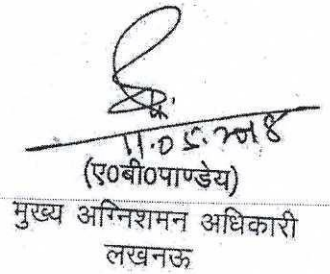 11.05.2018
(ए0बी0पाण्डेय)
मुख्य अग्निशमन अधिकारी
लखनऊ